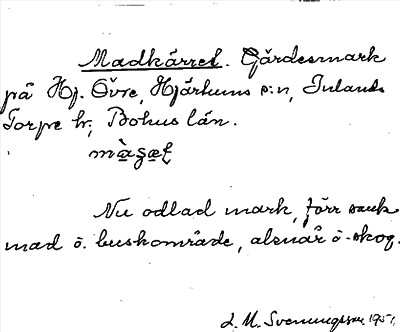 Madkärret. Gärdesmark
på Hj. Övre, Hjärtums s:n, Inlands
Torpe hr, Bohus län.
Nu odlad mark, förr sank
mad o. buskområde, alsnår o skog.
L. M. Svenungsson 1951.